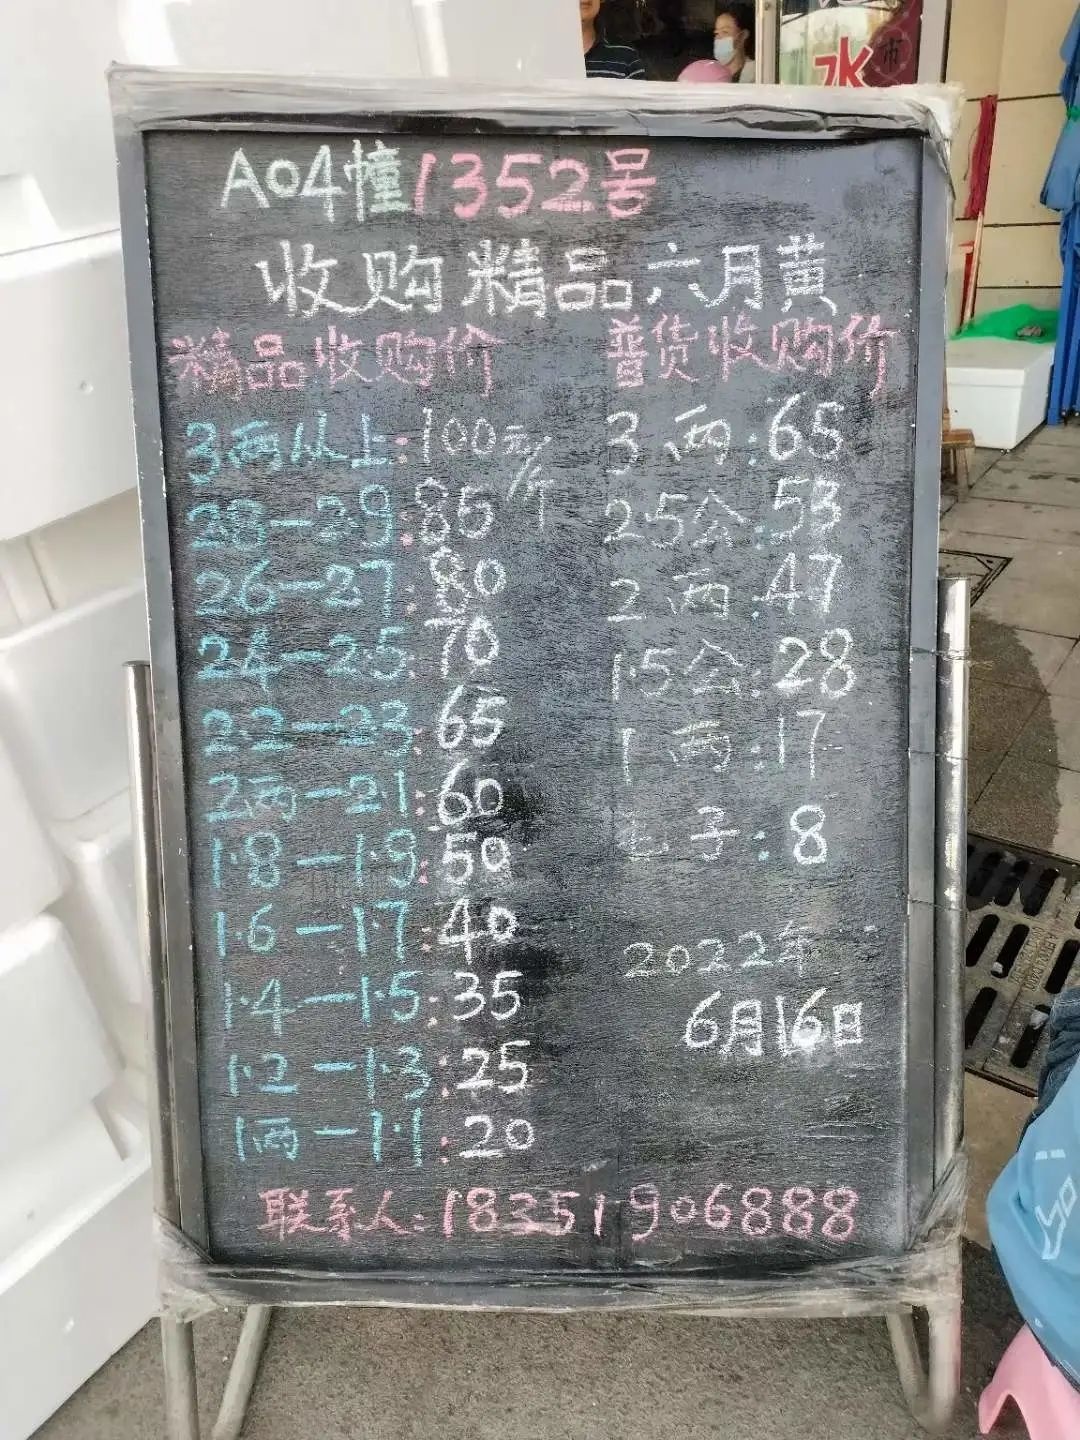 水
市
A04幢1352号
收购精品六月黄
精品收购价
3两从上:100元/斤
28-29:85
26-27:80
24-2.5:70
2.2-23:65
2两-2.1:60
1.8-1.9:50
1.6-1.7:40
1.4-1.5:35
1.2-1.3:25
1两-1.1:20
普货收购价
3两:65
2.5公:53
2两:47
1.5公:28
1两:17
子:8
2022年
6月16日
联系人:18351906888